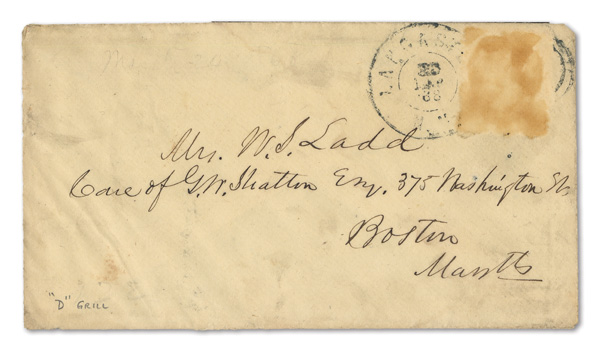 LANCASTER
N.H.
Mrs. W. S. Ladd
Care of G. W. Shatton Esq. 375 Washington St.
Boston
Massts
"D" GRILL